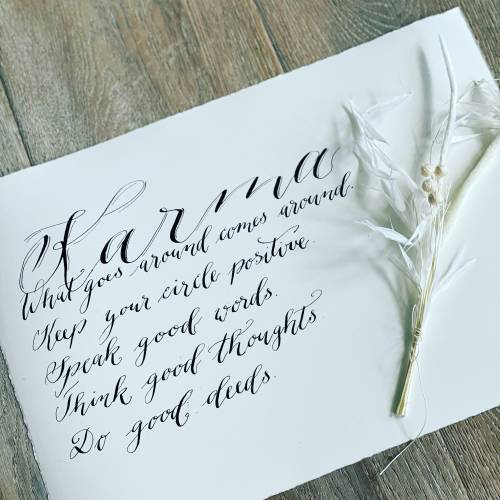 Karma
What goes around comes around.
Keep your circle positive.
Speak good words.
Think good thoughts.
Do good deeds.